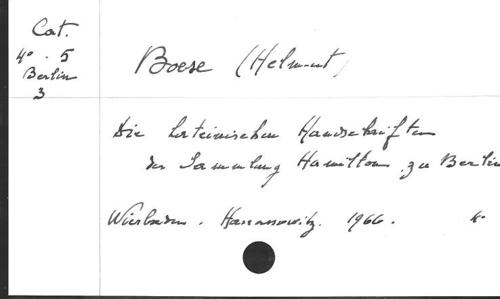 Cat.
4° . 5
Berlin
3
Boese (Helmut)
Die lateinischen Handschriften
der Sammlung Hamilton zu Berlin
Wiesbaden . Harrassowitz. 1966 .